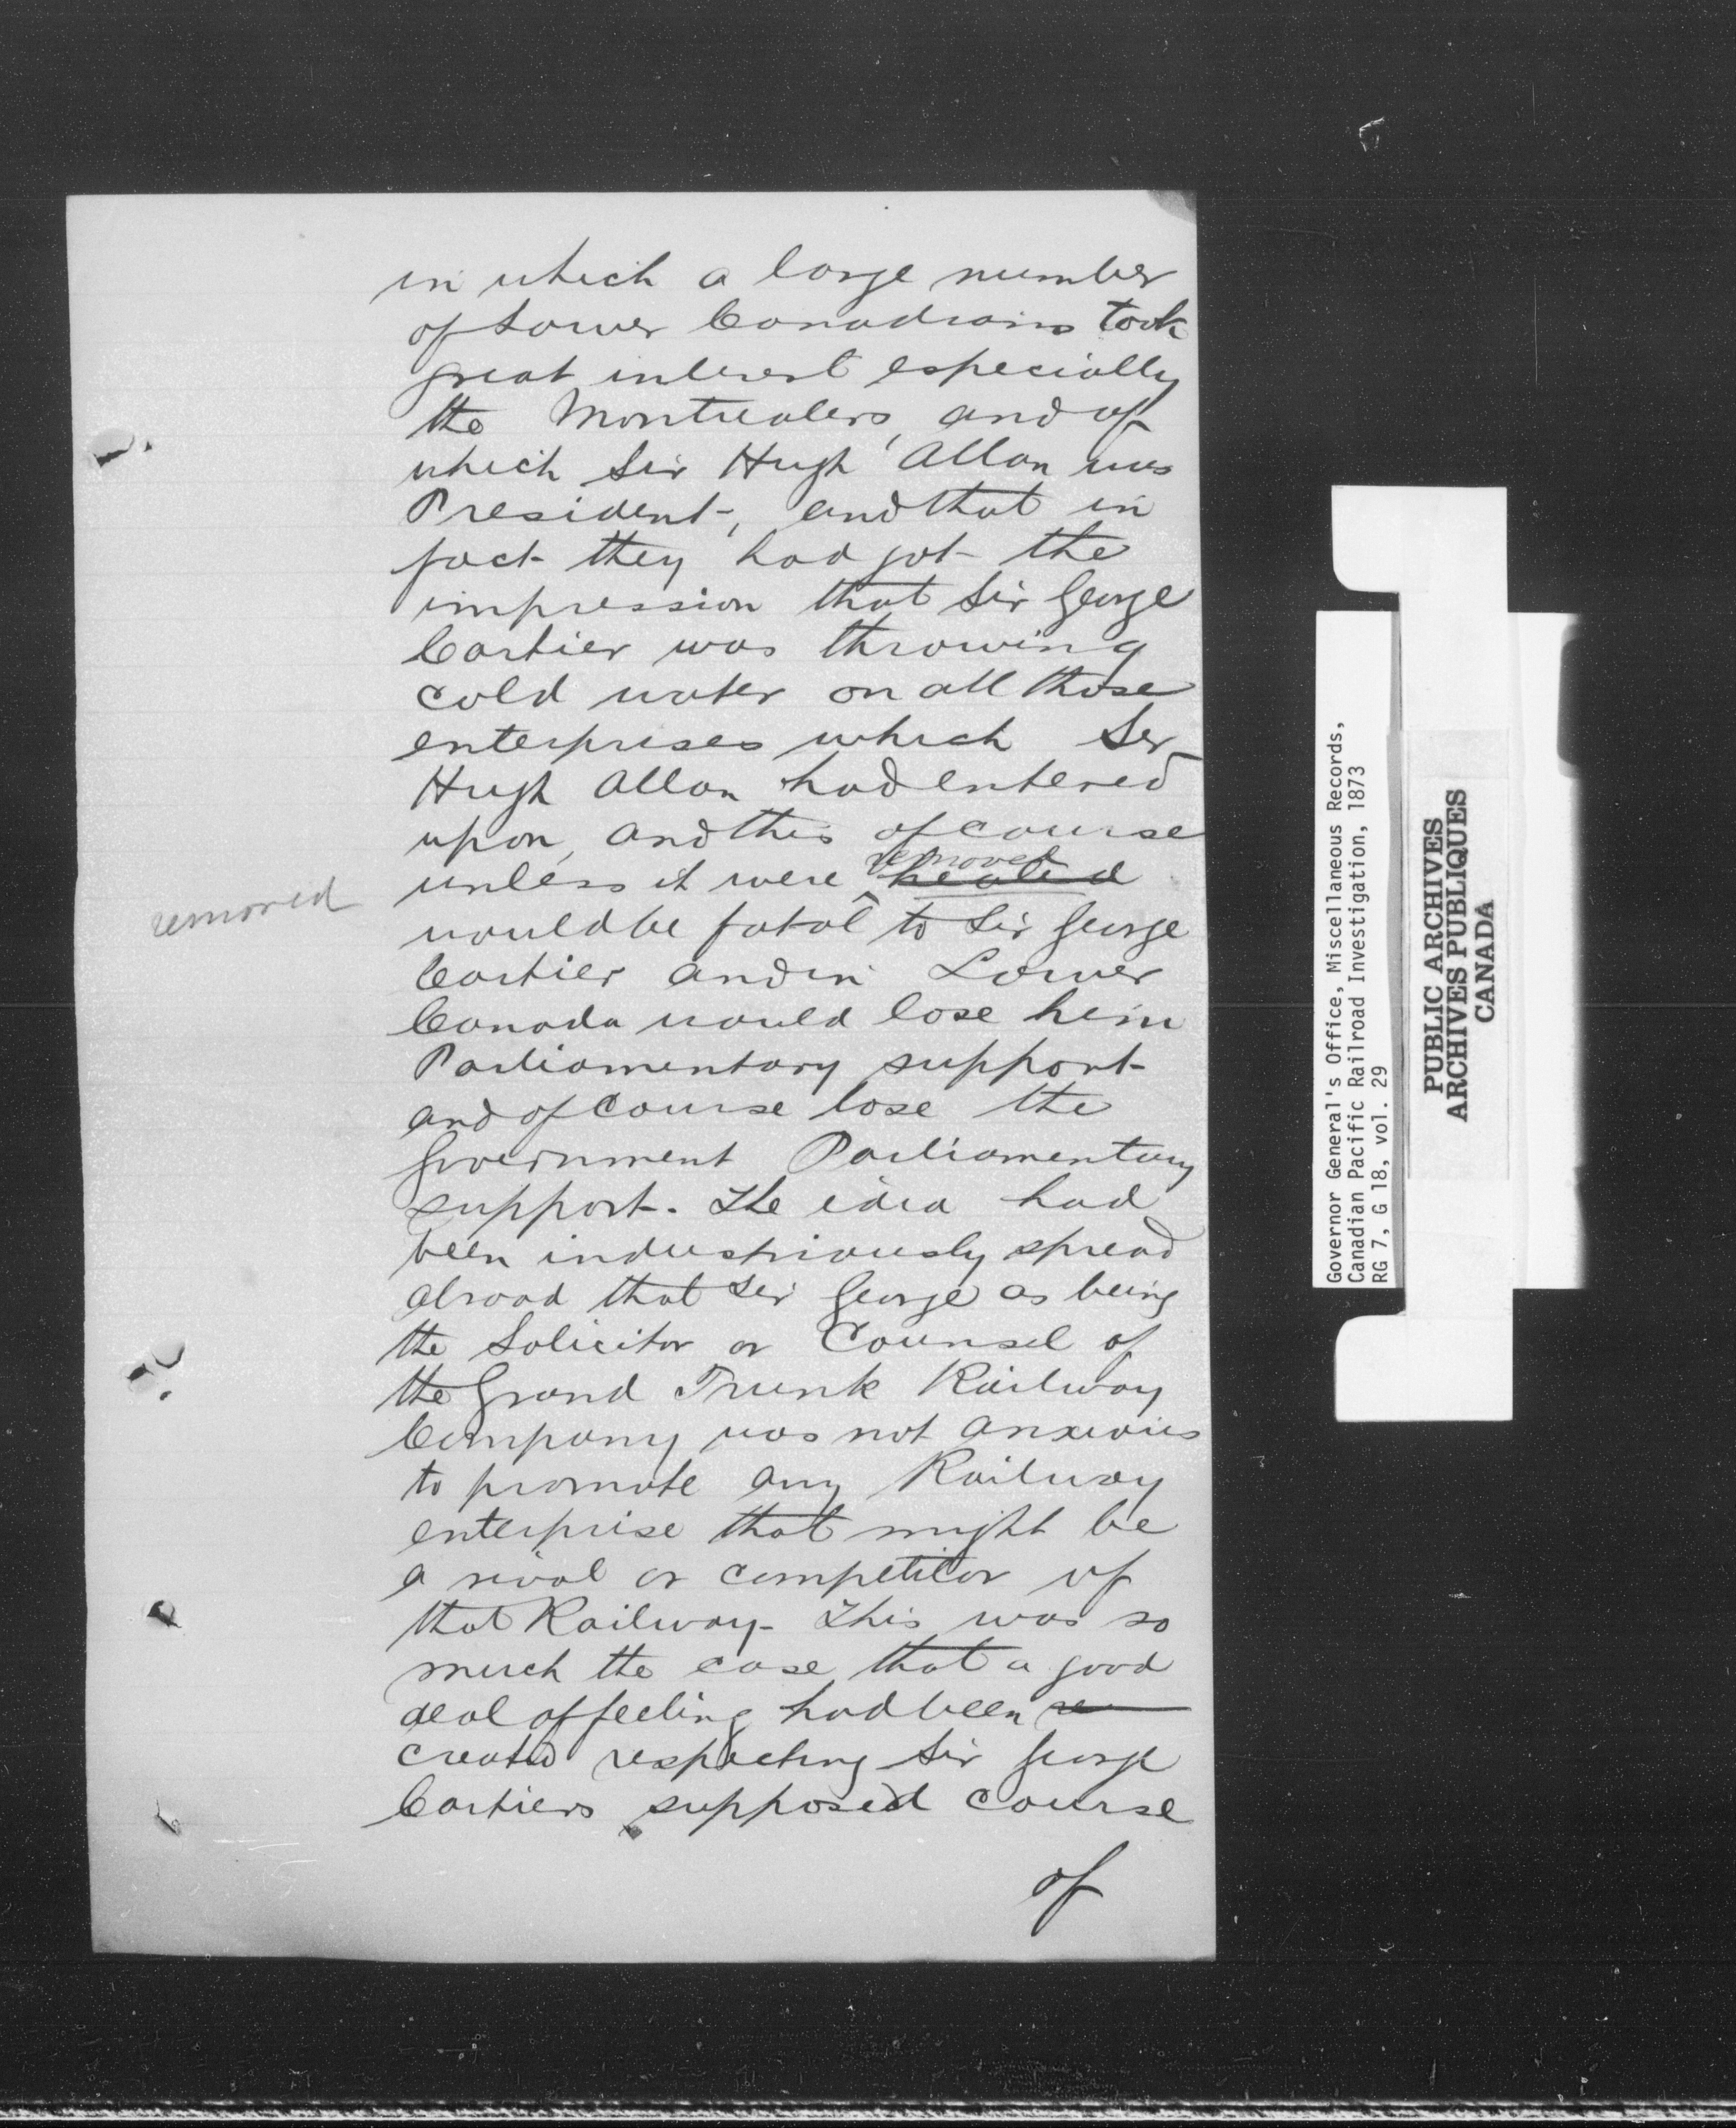 in which a large number
of Lower Canadians took
great interest especially
the Montrealers, and of
which Sir Hugh Allan was
President, and that in
fact they had got the
impression that Sir George
Cartier was throwing
cold water on all those
enterprises which Sir
Hugh Allan had entered
upon, and this of course
removed
unless it were healed
removed
would be fatal to Sir George
Cartier and in Lower
Canada would lose him
Parliamentary support
and of course lose the
Government Parliamentary
support. The idea had
been industriously spread
abroad that Sir George as being
the Solicitor or Counsel of
the Grand Trunk Railway
Company was not anxious
to promote any Railway
enterprise that might be
a rival or competitor of
that Railway. This was so
much the case that a good
deal of feeling had been re
created respecting Sir George
Cartiers supposed course
of
Governor General's Office, Miscellaneous Records,
Canadian Pacific Railroad Investigation, 1873
RG 7, G 18, vol. 29
PUBLIC ARCHIVES
ARCHIVES PUBLIQUES
CANADA